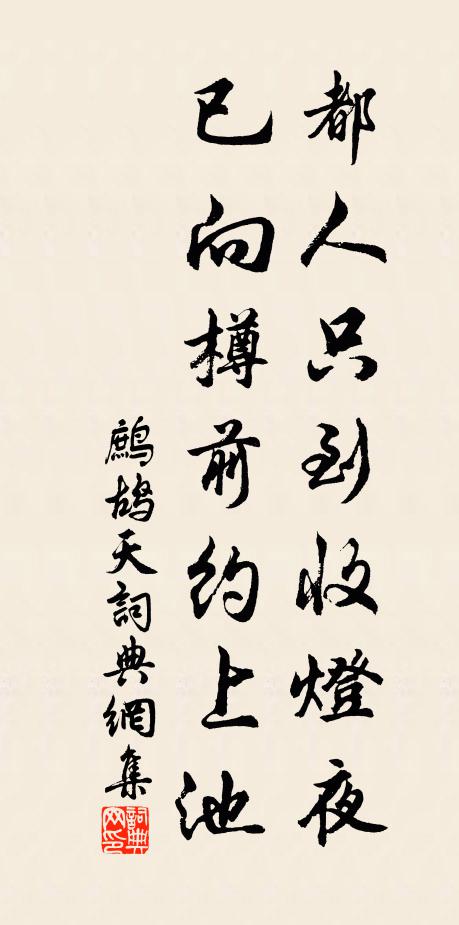 都人只到收燈夜
已向樽前約上池
鷓鴣天詞典網集
詞典網印